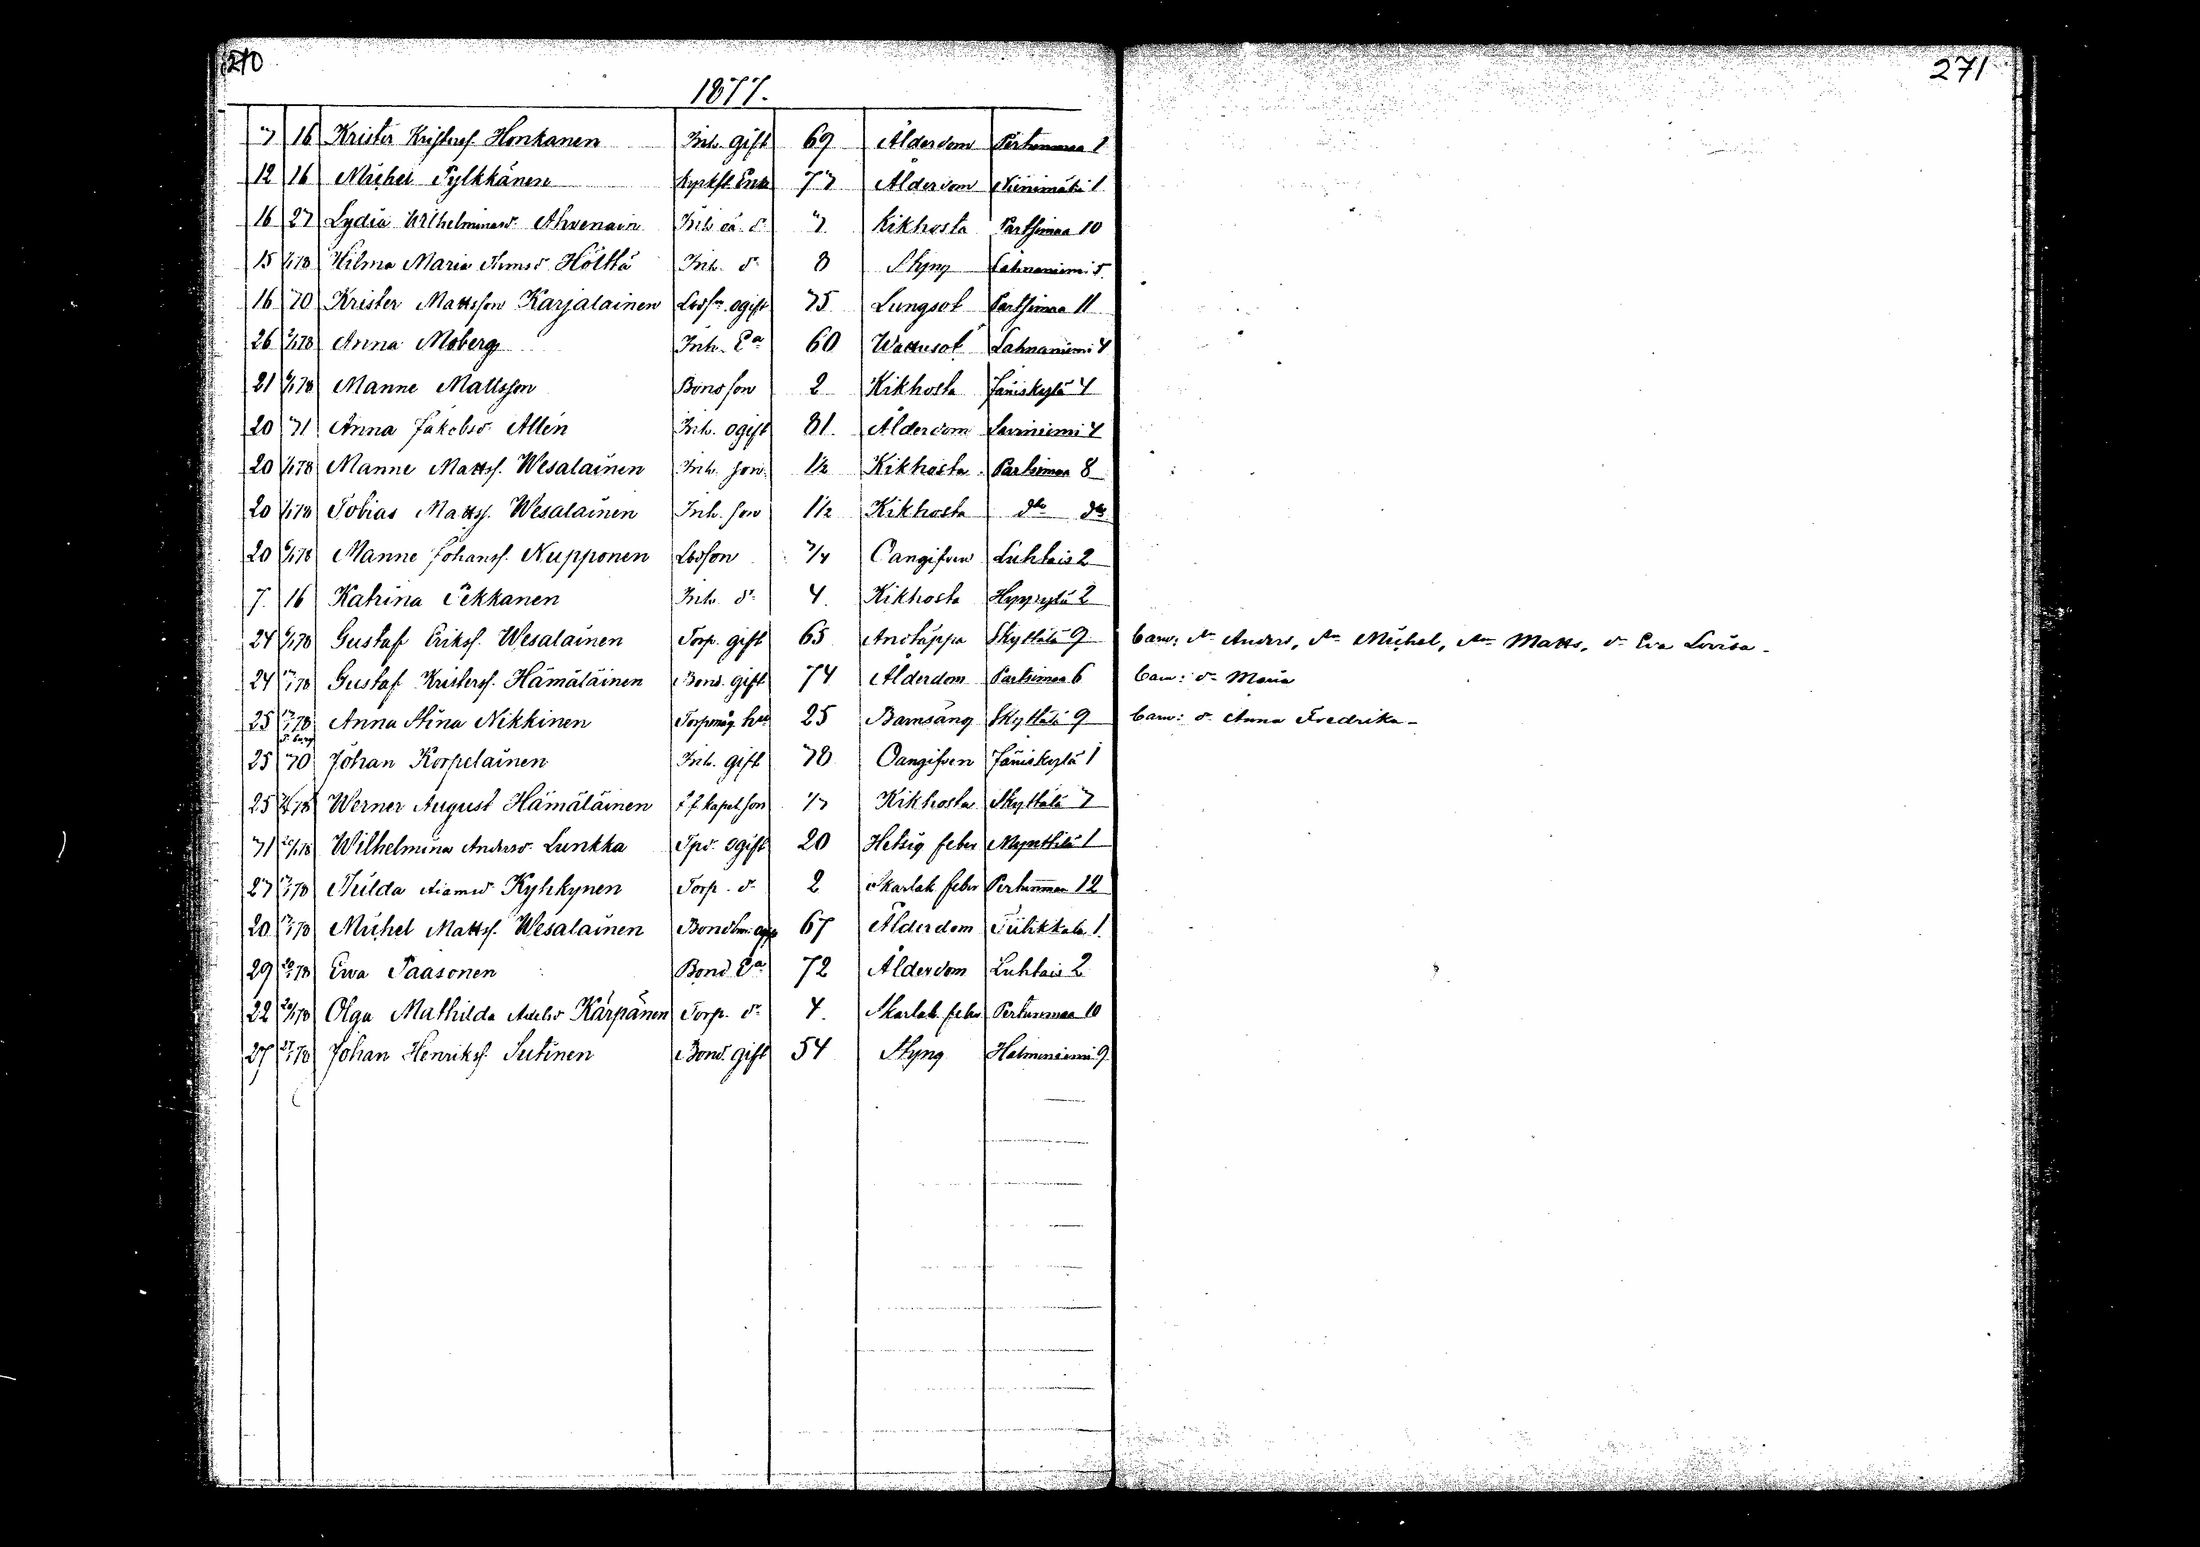 270
271
1877.
7 16 Krister Kristersf. Honkanen Inh. gift 69 Ålderdom Pertunmaa 1
12 16 Michel Pylkkänen Kyrkft. Enkl 77 Ålderdom Niinimäki 1
16 27 Lydia Wilhelminasd. Ahvenain Inh. oä. d. 7 Kikhosta Partsimaa 10
15 1/178 Hilma Maria Thmsd. Hölttä Inh. d. 8 Styng Lahnaniemi 5.
16 70 Krister Mattsson Karjalainen Lodsm. ogift 75 Lungsot Partsimaa 11
26 78 Anna Moberg Inh. Ea 60 Wattusot Lahnaniemi 4
21 6/178 Manne Mattsson Bondson 2 Kikhosta Jäniskylä 4
20 71 Anna Jakobsd. Allén Inh. ogift 81. Ålderdom Savniemi 4
20 1/178 Manne Mattsf. Wesalainen Inh. son 1½ Kikhosta Partsimaa 8
20 1/178 Tobias Mattsf. Wesalainen Inh. son 1½ Kikhosta do do
20 6/178 Manne Johansf. Nupponen Lodson 7/4 Oangifven Luhtais 2
7. 16 Katrina Pekkanen Inh. d. 4. Kikhosta Hyyrylä 2
24 6/178 Gustaf Eriksf. Wesalainen Torp. gift 65 Andtäppa Skyttälä 9 barn: sn Anders, sn Michel, sn Matts, d. Eva Lovisa -
24 78 Gustaf Kristersf. Hämäläinen Bond. gift 74 Ålderdom Partsimaa 6 barn: d. Maria
25 78 Anna Stina Nikkinen Torpmåg hu 25 Barnsäng Skyttälä 9 barn: d. Anna Fredrika -
25 70 Johan Korpelainen Inh. gift 78 Oangifven Jäniskylä 1
25 78 Werner August Hämäläinen f f kapel. son Kikhosta Skyttälä 7
71 20/178 Wilhelmina Andersd. Lunkka Tpd. ogift 20 Hetsig feber Mynttilä 1
27 78 Hilda Adamsd. Kyhkynen Torp. d. 2 Skarlak. feber Pertunmaa 12
20 78 Michel Mattsf. Wesalainen Bond 67 Ålderdom Tiilikkala 1.
29 78 Ewa Paasonen Bond Ea 72 Ålderdom Luhtais 2
22 20/178 Olga Mathilda Kärpänen Torp. d. 4. Skarlak. feber Pertunmaa 10
27 27/178 Johan Henriksf. Sutinen Bond. gift 54 Styng Halmeniemi 9